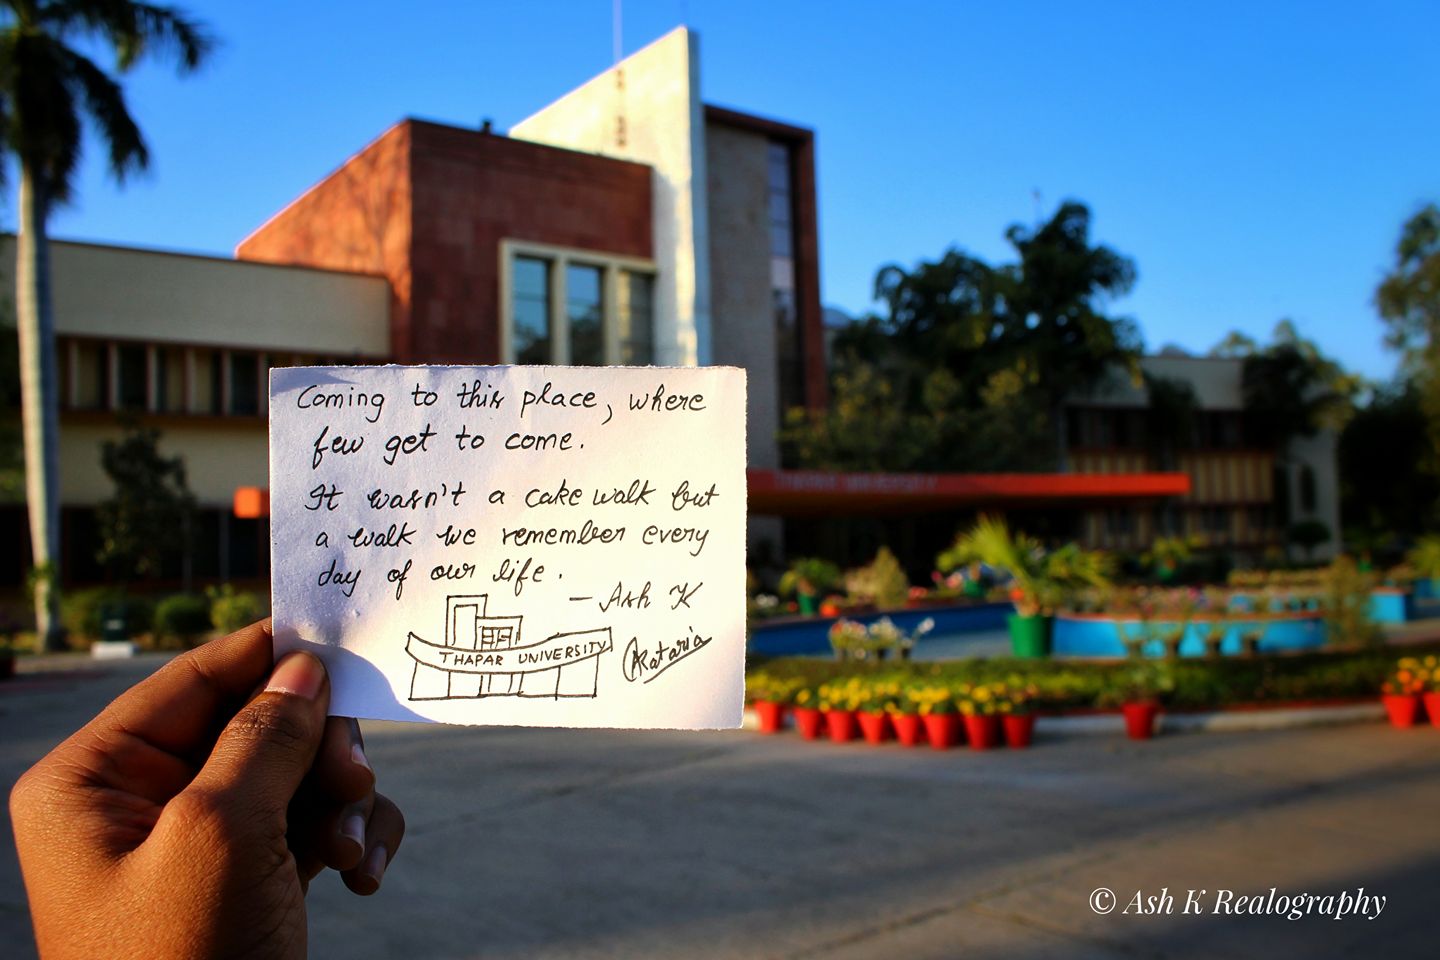 Coming to this place, where
few get to come.
It wasn't a cake walk but
a walk we remember every
day of our life.
- Ash K
THAPAR UNIVERSITY
Kataria
THAPAR UNIVERSITY
© Ash K Realography